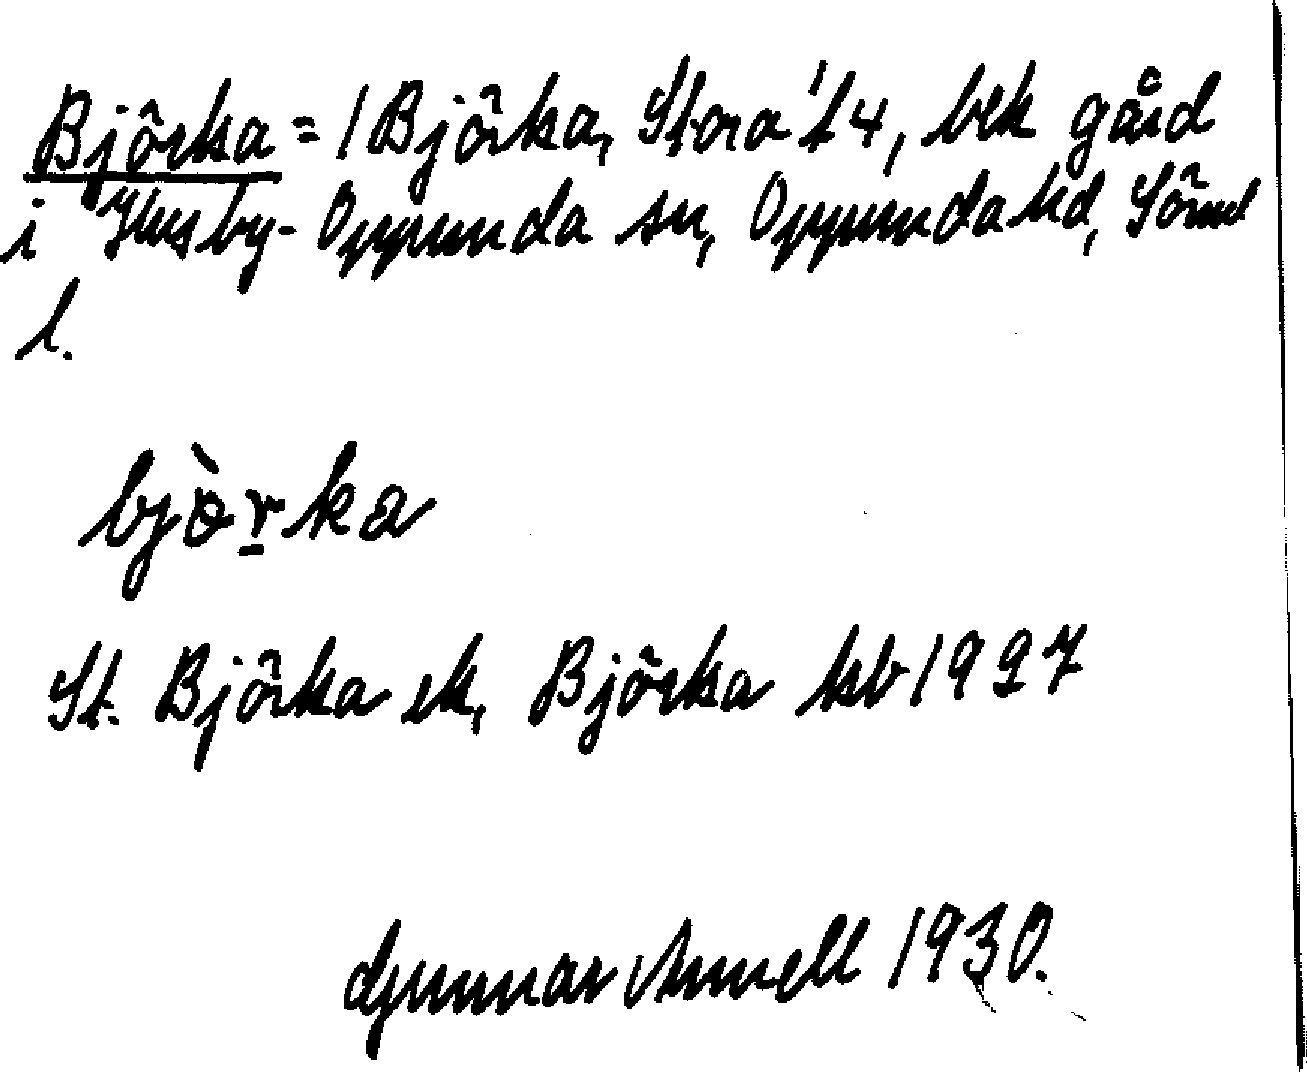 Björka = /Björka, Stora' f4, bek gård
i Husby-Oppunda sn, Oppunda hd, Söml
l.
bjòr̲ka
St. Björka ek, Björka kb 1927
Gunnar Annell 1930.